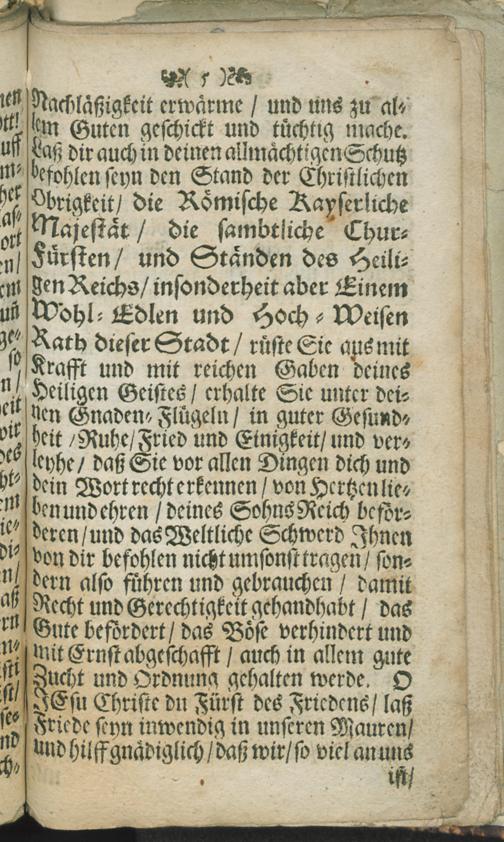 ( 5 )
Nachläßigkeit erwärme / und uns zu al-
lem Guten geschickt und tüchtig mache.
Laß dir auch in deinen allmächtigen Schutz
befohlen seyn den Stand der Christlichen
Obrigkeit/ die Römische Kayserliche
Majestät/ die sambtliche Chur-
Fürsten/ und Ständen des Heili-
gen Reichs/ insonderheit aber Einem
Wohl-Edlen und Hoch-Weisen
Rath dieser Stadt/ rüste Sie aus mit
Krafft und mit reichen Gaben deines
Heiligen Geistes/ erhalte Sie unter dei-
nen Gnaden-Flügeln/ in guter Gesund-
heit /Ruhe/Fried und Einigkeit/ und ver-
leyhe/ daß Sie vor allen Dingen dich und
dein Wort recht erkennen/ von Hertzen lie-
ben und ehren/ deines Sohns Reich beför-
deren/und das Weltliche Schwerd Ihnen
von dir befohlen nicht umsonst tragen/ son-
dern also führen und gebrauchen/ damit
Recht und Gerechtigkeit gehandhabt/ das
Gute befördert/ das Böse verhindert und
mit Ernst abgeschafft / auch in allem gute
Zucht und Ordnung gehalten werde. O
JEsu Christe du Fürst des Friedens/ laß
Friede seyn inwendig in unseren Mauren/
und hilff gnädiglich/ daß wir/ so viel an uns
ist/